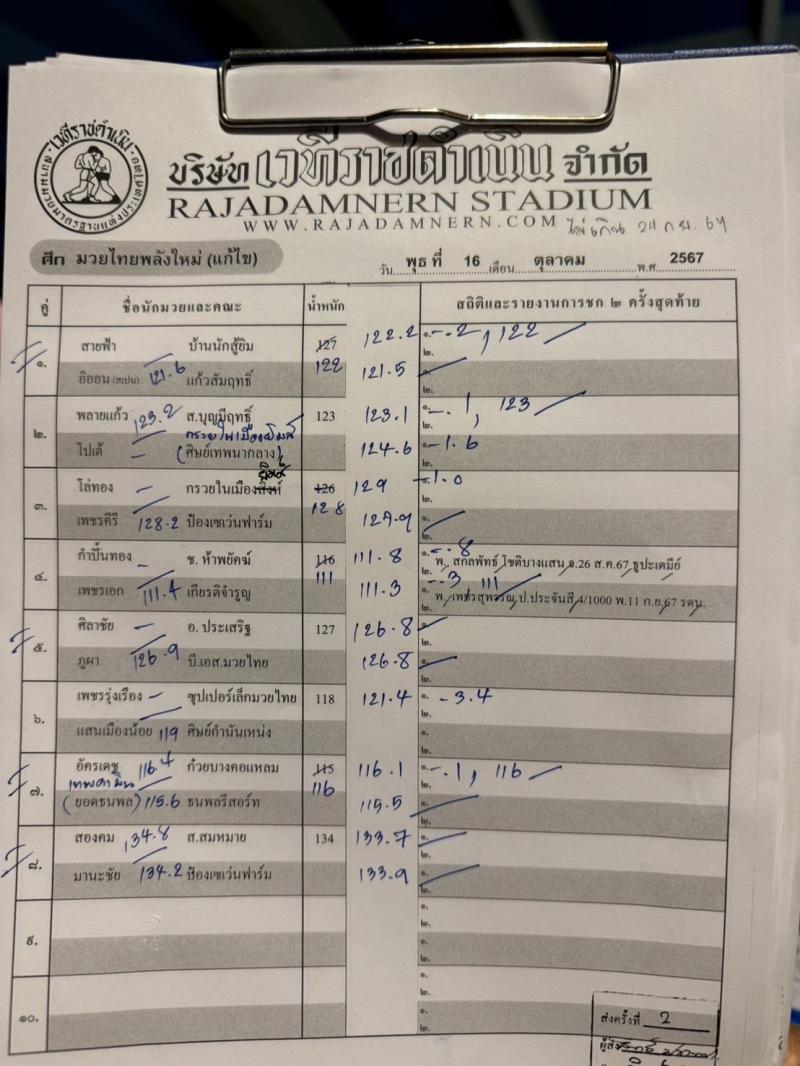 เวทีราชดำเนิน
บริษัท เวทีราชดำเนิน จำกัด
RAJADAMNERN STADIUM
WWW.RAJADAMNERN.COM ไม่เกิน 24 ก.ย. 67
ศึก มวยไทยพลังใหม่ (แก้ไข) วัน พุธ ที่ 16 เดือน ตุลาคม พ.ศ 2567
คู่ ชื่อนักมวยและคณะ น้ำหนัก สถิติและรายงานการชก ๒ ครั้งสุดท้าย
๑. สายฟ้า บ้านนักสู้ยิม 127 122.2 ๑. -.2, 122
๒.
อิออน (สเปน) 121.6 แก้วสัมฤทธิ์ 122 121.5 ๑.
๒.
๒. พลายแก้ว 123.2 ส.บุญมีฤทธิ์ 123 123.1 ๑. -.1, 123
๒.
กรวยในเมืองยิมส์
โปเต้ - (ศิษย์เทพนากลาง) 124.6 ๑. -1.6
๒.
๓. โล่ทอง - กรวยในเมืองสิงห์ ยิมส์ 126 129 ๑. -1.0
๒.
เพชรคีรี 128.2 ป้องเซเว่นฟาร์ม 128 127.9 ๑.
๒.
๔. กำปั้นทอง - ช. ห้าพยัคฆ์ 116 111.8 ๑. -.8
๒. พ. สกลพัทธ์ โชติบางแสน อ.26 ส.ค.67 ธูปะเตมีย์
เพชรเอก 111.4 เกียรติจำรูญ 111 111.3 ๑. -.3 111
๒. พ. เพชรสุพรรณ ป.ประจันสี 4/1000 พ.11 ก.ย.67 รดน.
๕. ศิลาชัย - อ. ประเสริฐ 127 126.8 ๑.
๒.
ภูผา 126.9 บี.เอส.มวยไทย 126.8 ๑.
๒.
๖. เพชรรุ่งเรือง - ซุปเปอร์เล็กมวยไทย 118 121.4 ๑. -3.4
๒.
แสนเมืองน้อย 119 ศิษย์กำนันเหน่ง ๑.
๒.
๗. อัครเดช 116.4 ก๋วยบางคอแหลม 115 116.1 ๑. -.1, 116
๒.
เทพคามิน
(ยอดธนพล) 115.6 ธนพลรีสอร์ท 116 115.5 ๑.
๒.
๘. สองคม 134.8 ส.สมหมาย 134 133.7 ๑.
๒.
มานะชัย 134.2 ป้องเซเว่นฟาร์ม 133.9 ๑.
๒.
๙. ๑.
๒.
๑.
๒.
๑๐. ๑.
๒.
๑.
๒.
ส่งครั้งที่ 2